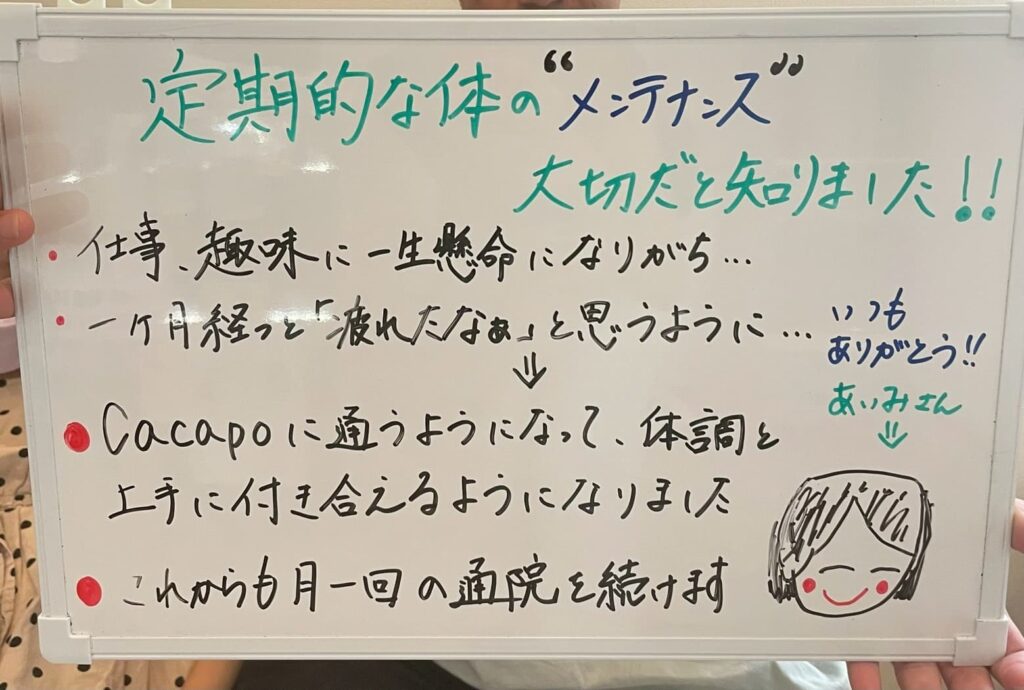 定期的な体の“メンテナンス”
大切だと知りました!!
・仕事、趣味に一生懸命になりがち…
・一ヶ月経つと「疲れたなぁ」と思うように…
⇓
● Cacapoに通うようになって、体調と
上手に付き合えるようになりました
● これからも月一回の通院を続けます
いつも
ありがとう!!
あいみさん
⇓